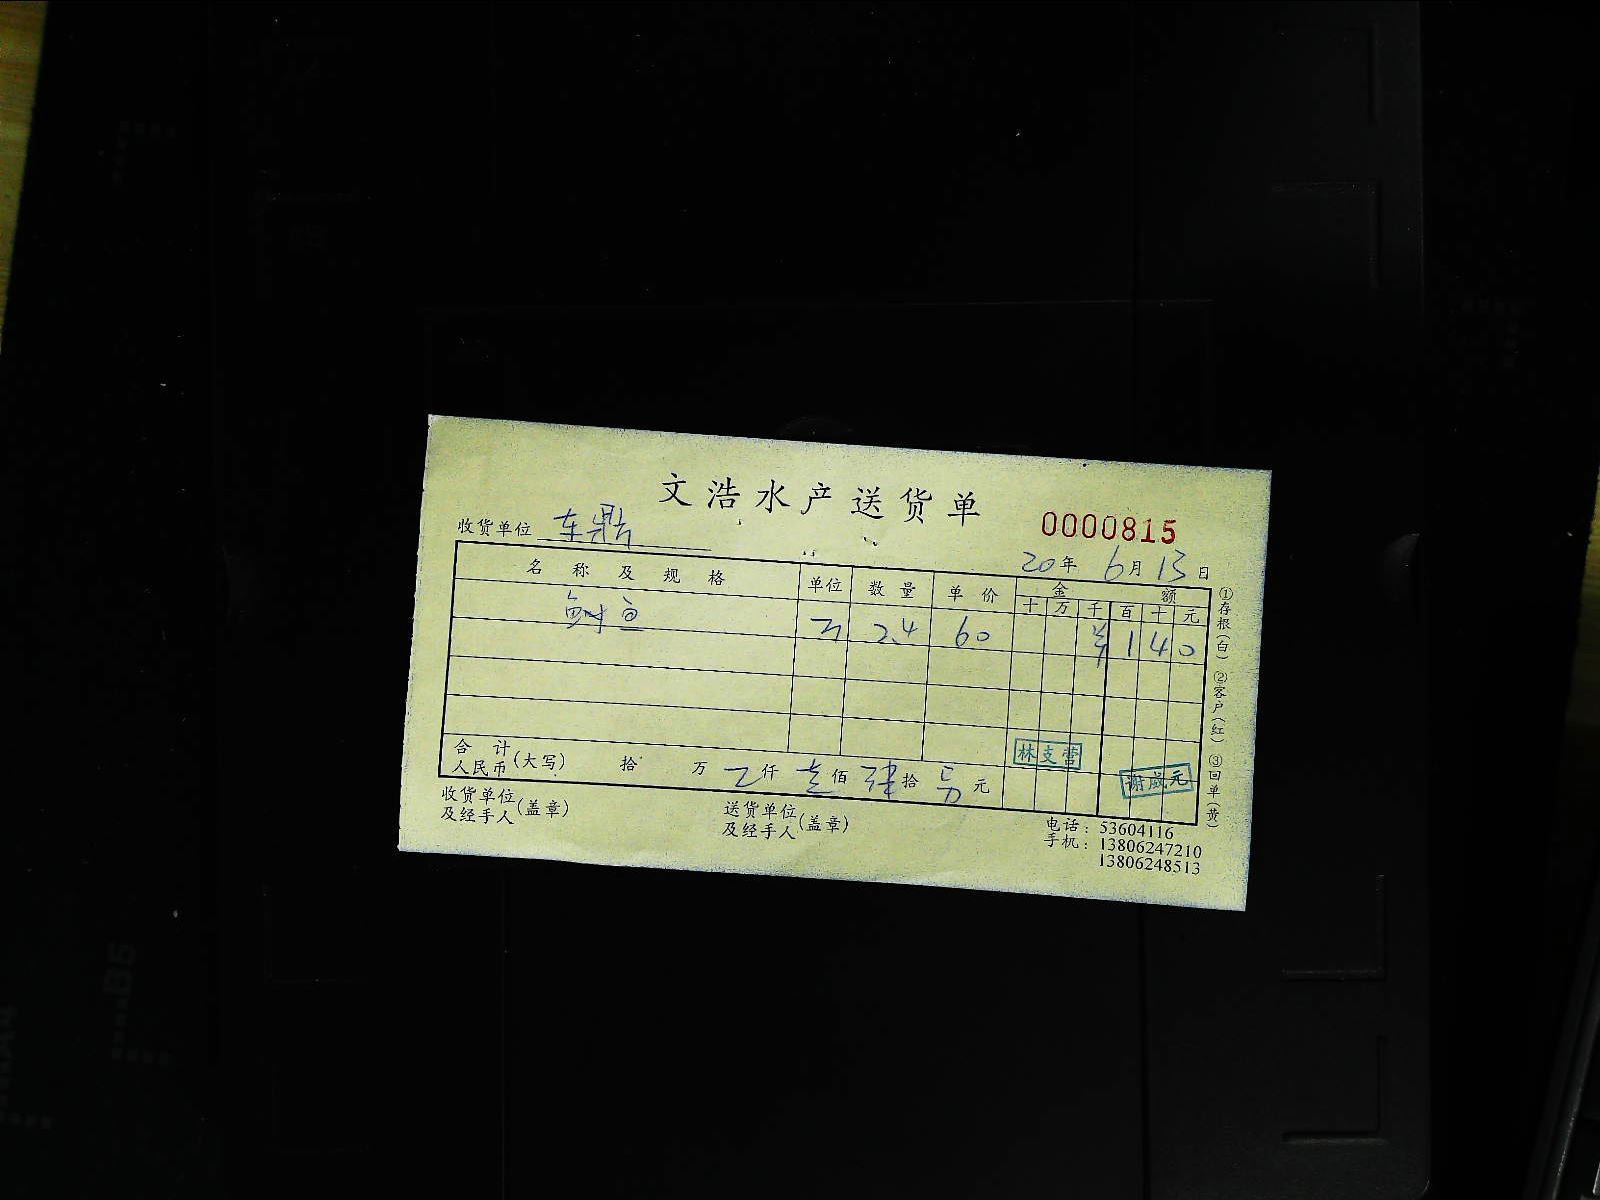 文浩水产送货单
收货单位 东鼎
0000815
20年 6月 13日
名称及规格 单位 数量 单价 金额
十 万 千 百 十 元
鲥鱼 斤 2.4 60 ¥ 1 4 0
合计人民币(大写) 拾 万 仟 壹佰 肆拾 元
林支营
谢咸元
收货单位及经手人(盖章) 送货单位及经手人(盖章)
电话：53604116
手机：13806247210
13806248513
①存根(白) ②客户(红) ③回单(黄)
B5
A4